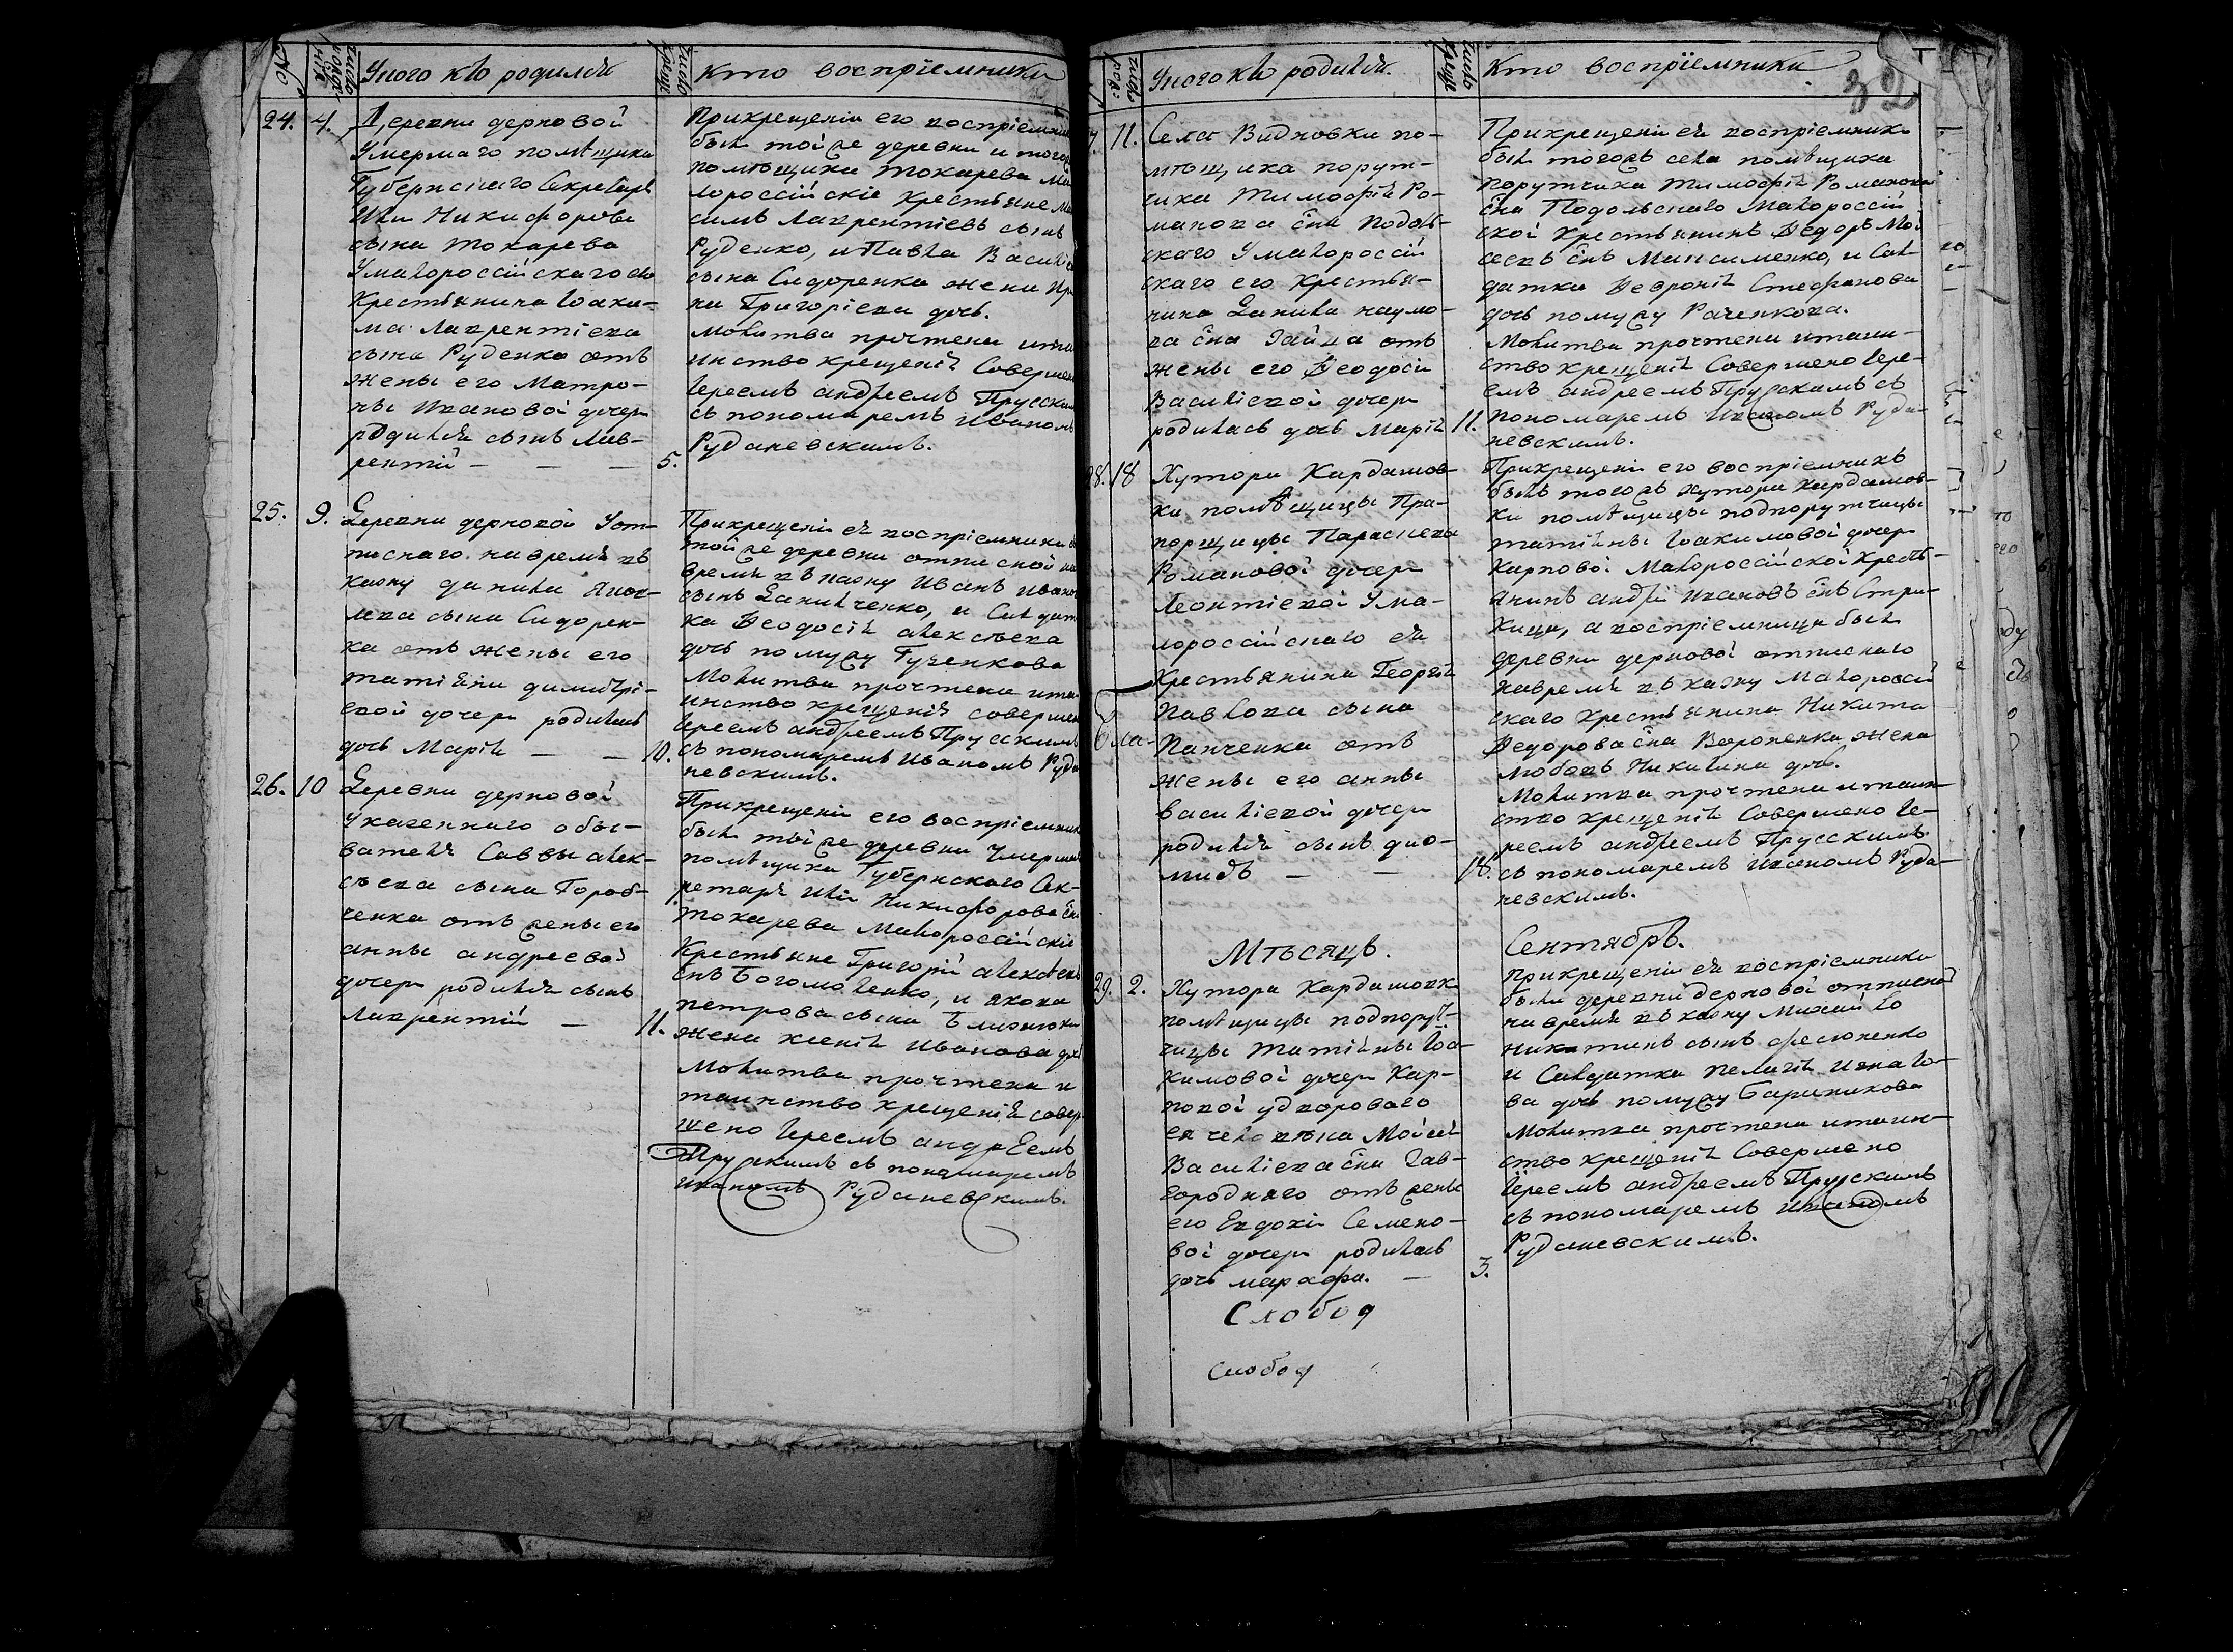 №
число рожде нія
У кого кто родился
число креще
кто воспріемники
24.
4.
Деревни дерновой
умершаго помѣщика
Губернскаго Секретаря
Ильи Никифорова
сына Токарева
У малороссійскаго его
Крестьянина Іоаки-
ма Лаврентіева
сына Руденко отъ
жены его Матро-
ны Ивановой дочери
родился сынъ Лав-
рентій — — —
5.
При крещеніи его воспріемники
были той же деревни и того
помѣщика Токарева Ма
лороссійскіе Крестьяне
симъ Лаврентіевъ сынъ
Руденко, и Павла Василіева
сына Сидоренка жена Ири
на Григоріева дочь.
Молитва прочтена и та
инство крещенія Совершено
Іереемъ андреемъ Прусскимъ
съ пономаремъ Иваномъ
Руданевскимъ.
25.
9.
Деревни дерновой У от-
писнаго на время въ
казну данила Яков-
лева сына Сидорен-
ка отъ жены его
татіяны димитрі-
евой дочери родилась
дочь Марія — —
10.
При крещеніи ея воспріемники
той же деревни отписной на
время въ казну Иванъ Иванов
сынъ Данильченко, и Салдат
ка Феодосія алексѣева
дочь по мужу Гученкова
Молитва прочтена и та
инство крещенія совершено
Іереемъ андреемъ Прусскимъ
съ пономаремъ Иваномъ Руда
невскимъ.
26.
10
Деревни дерновой
У казеннаго обы-
вателя Саввы алек-
сѣева сына Гороб-
ченка отъ жены его
анны андреевой
дочери родился сынъ
Лаврентій —
11.
При крещеніи его воспріемники
были той же деревни Умершаго
помѣщика Губернскаго Сек-
ретаря Ильи Никифорова сна
токарева Малороссійскіе
Крестьяне Григорій алексѣевъ
снъ Богомоленко, и якова
петрова сына
жена ксенія Иванова дочь
Молитва прочтена и
таинство крещенія совер
шено Іереемъ андрЕемъ
Прусскимъ съ пономаремъ
Иваномъ Руданевскимъ.
число рож:
У кого кто родился.
число креще
Кто воспріемники
32
7.
11.
Села Видновки по-
мѣщика порут-
чика Тимофея Ро-
манова сна Подоль-
скаго У малороссій
скаго его Крестья-
нина Данила наумо-
ва сна Зайца отъ
жены его Феодосіи
Василіевой дочери
родилась дочь Марія
11.
При крещеніи ея воспріемники
были тогожъ села помѣщика
порутчика тимофея Романова
сна Подольскаго Малороссій
ской Крестьянинъ Федоръ Мои
сеевъ снъ Максименко, и Сал
датка Февронія Стефанова
дочь по мужу Раченкова.
Молитва прочтена и таин-
ство крещенія Совершено Іере-
емъ андреемъ Прусскимъ съ
пономаремъ Иваномъ Руда-
невскимъ.
28.
18
Хутора Кардашов-
ки помѣщицы Пра-
порщицы Параскева
Романовой дочери
Леонтіевой У ма-
лороссійскаго ея
Крестьянина Георгія
Павлова сына
Панченка отъ
жены его анны
василіевой дочери
родился сынъ дио-
мидъ — —
18.
При крещеніи его воспріемникъ
былъ тогожъ хутора кардашов-
ки помѣщицы подпорутчицы
татіяны Іоакимовой дочери
карповой Малороссійской Кресть-
янинъ андрей Ивановъ снъ Стри-
жица, а воспріемница была
деревни дерновой отписнаго
на время въ казну Малороссій
скаго крестьянина Никита
Федорова сна Вороненка жена
любовь Никитина дочь.
Молитва прочтена и таин-
ство крещенія Совершено Іе-
реемъ андреемъ Прусскимъ.
съ пономаремъ Иваномъ Руда-
невскимъ.
Мѣсяцъ.
Сентябрь.
29.
2.
Хутора Кардашовк
помѣщицы подпорут-
чицы Татіяны Іоа-
кимовой дочери Кар-
повой у двороваго
ея человѣка Моисея
Василіева сна Зав-
городнаго отъ жены
его Евдокіи Семено-
вой дочери родилась
дочь марѳа. —
3.
При крещеніи ея воспріемники
были деревни дерновой отписной
на время въ казну Михайло
Никитинъ сынъ фесюненко
и Салдатка пелагія Игнато-
ва дочь по мужу
Молитва прочтена и таин-
ство крещенія Совершено
Іереемъ андреемъ Прусскимъ
съ пономаремъ Иваномъ
Руданевскимъ.
Слобод
слобод